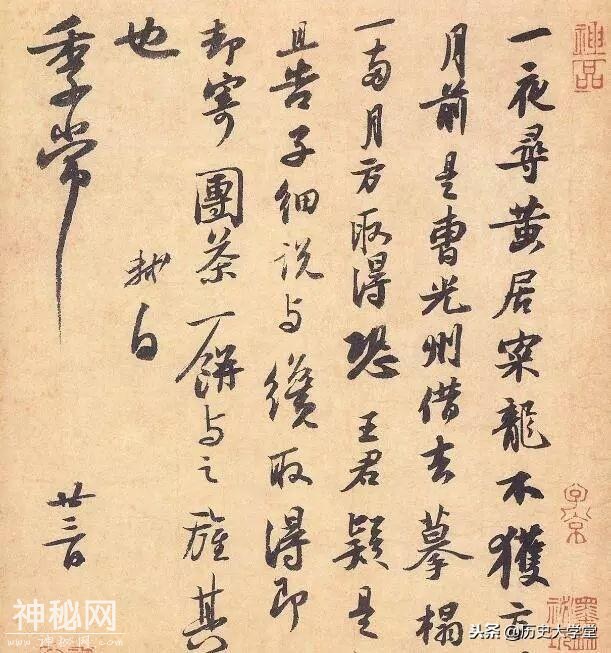 一夜尋黃居寀龍不獲方
月前是曹光州借去摹搨
一兩月方取得恐王君疑是
且告子細說与纔取得即
却寄團茶一餅与之旌其
也
軾白
季常
廿三日
神品
子京
神秘网
头条 @历史大学堂